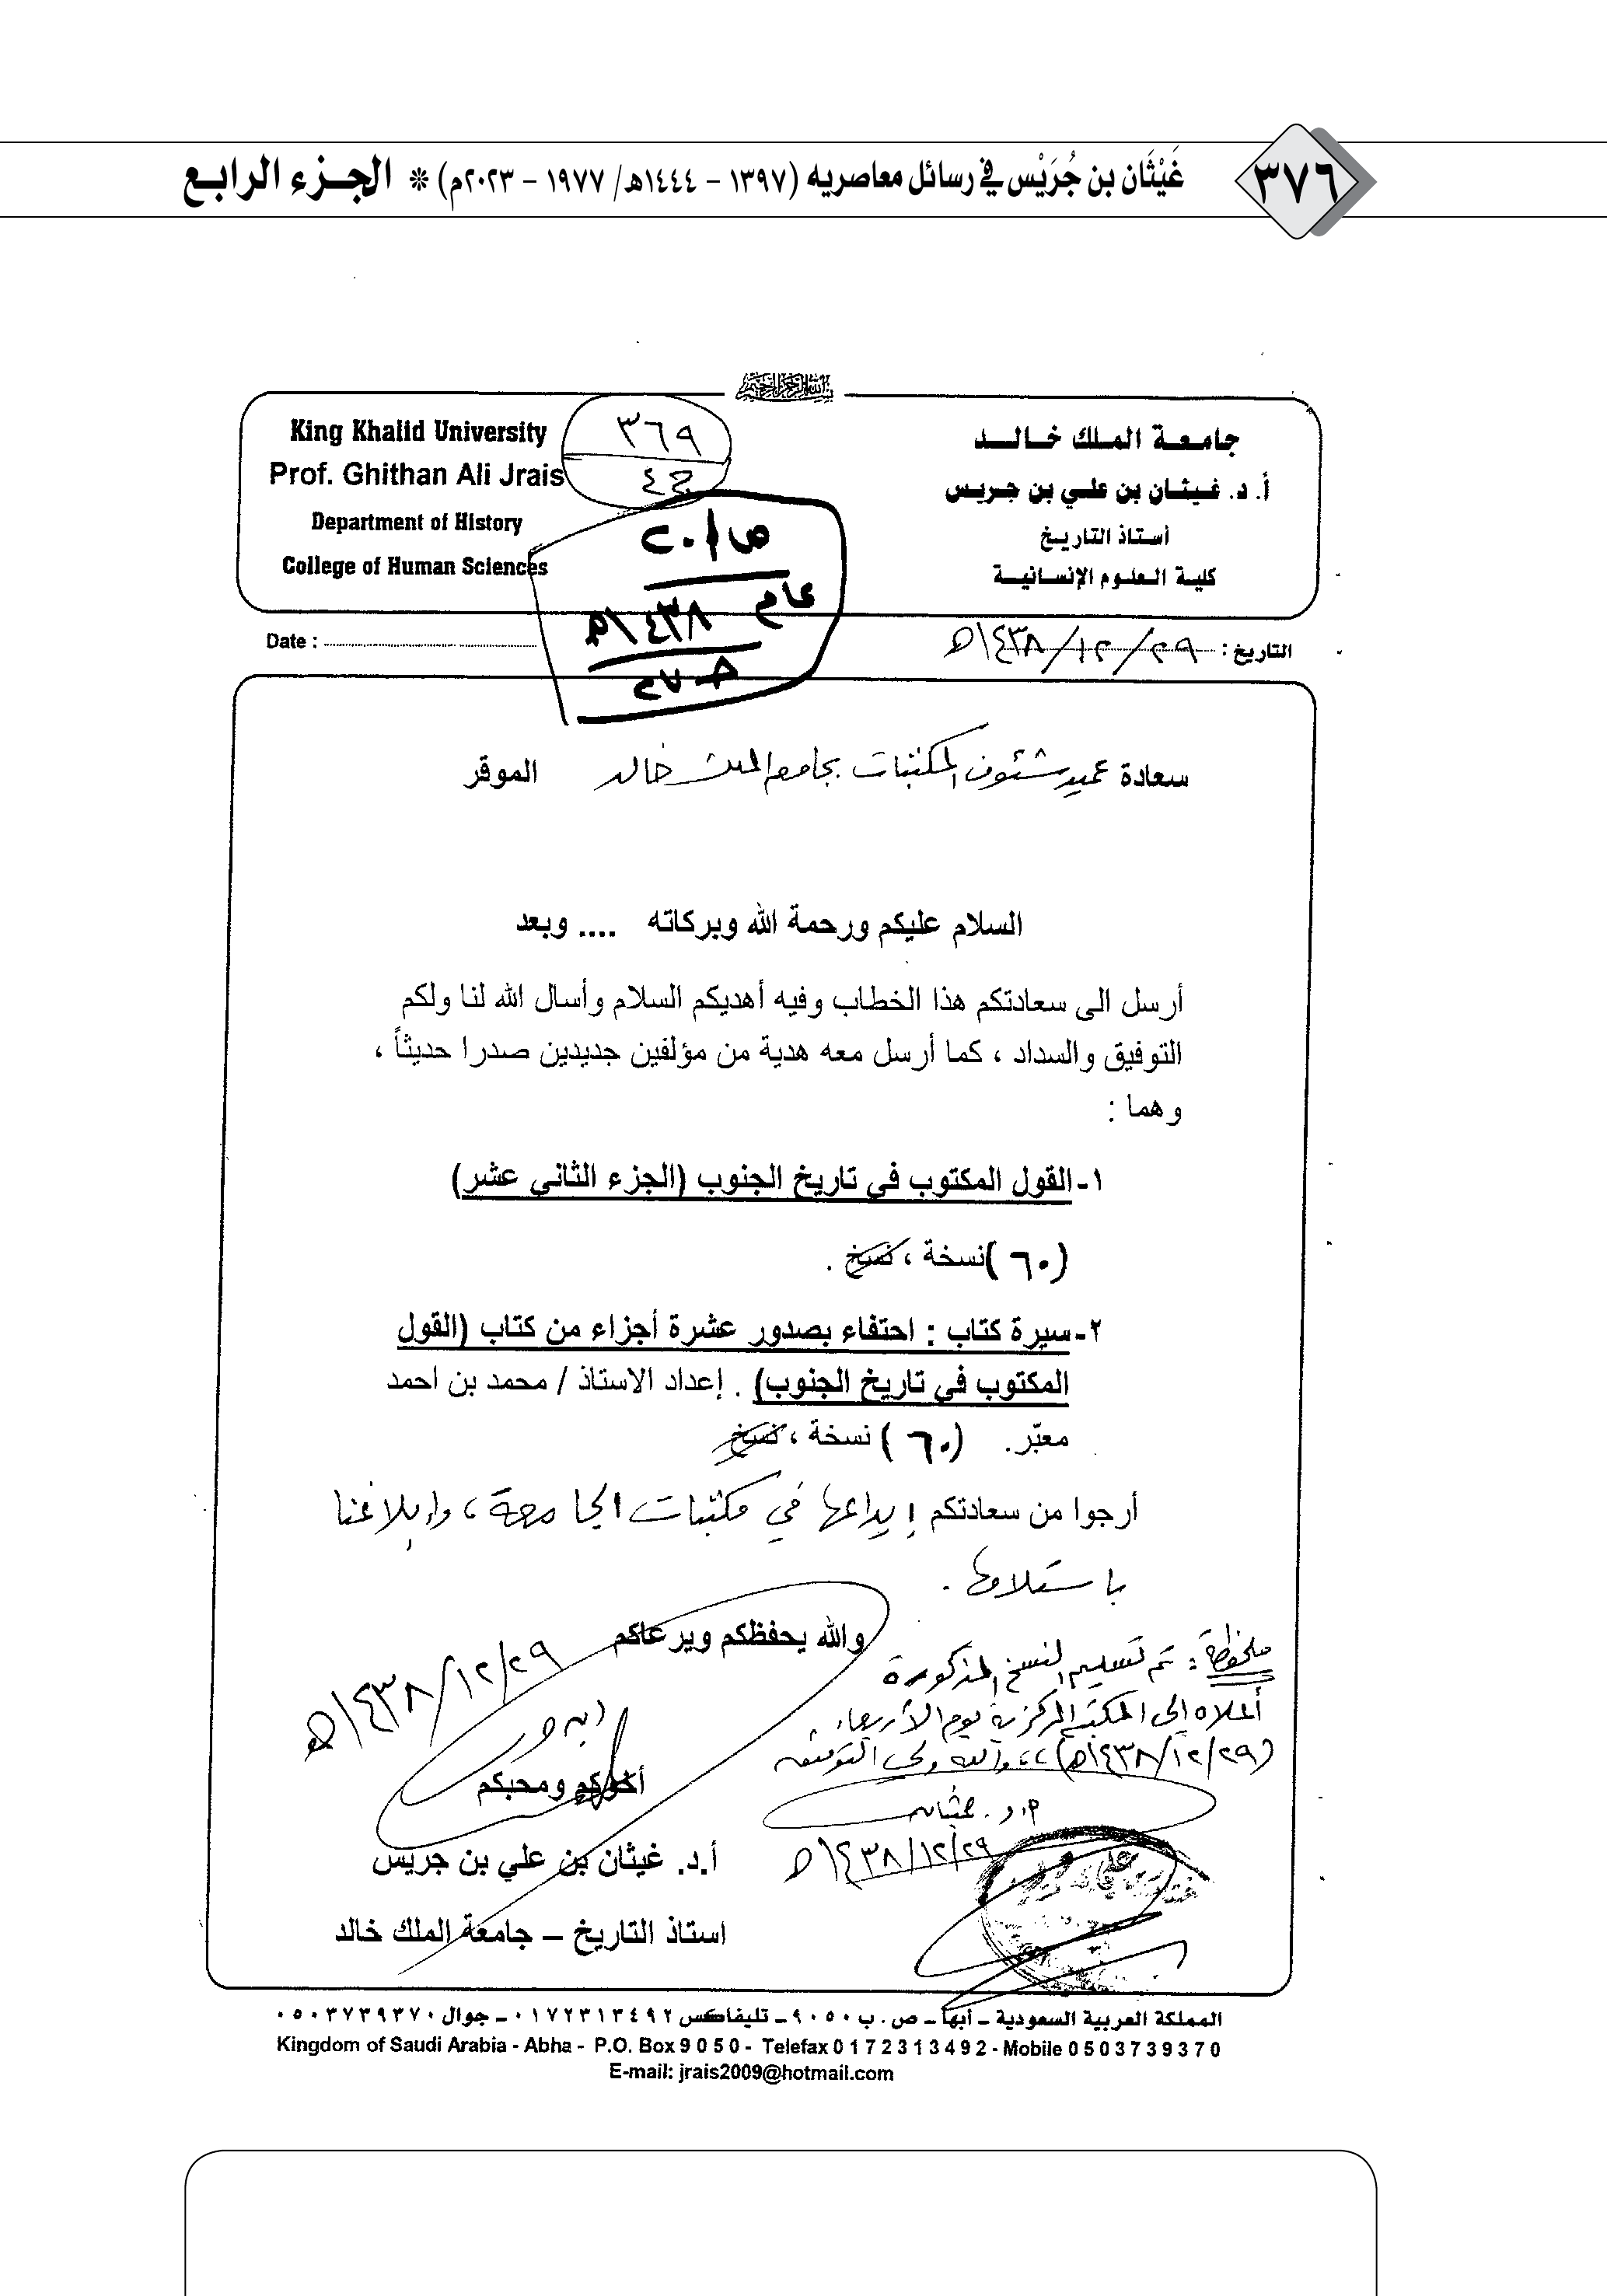 ٣٧٦
غَيْثَان بن جُرَيْس في رسائل معاصريه (١٣٩٧ - ١٤٤٤هـ/ ١٩٧٧ - ٢٠٢٣م) * الجزء الرابع
جامعة الملك خالد
أ. د. غيثان بن علي بن جريس
أستاذ التاريخ
كلية العلوم الإنسانية
King Khalid University
Prof. Ghithan Ali Jrais
Department of History
College of Human Sciences
٣٦٩
عام
١٤٣٨هـ
التاريخ : ٢٩/١٢/١٤٣٨هـ
Date :
سعادة عميد شئون المكتبات بجامعة الملك خالد الموقر
السلام عليكم ورحمة الله وبركاته .... وبعد
أرسل الى سعادتكم هذا الخطاب وفيه أهديكم السلام وأسال الله لنا ولكم
التوفيق والسداد ، كما أرسل معه هدية من مؤلفين جديدين صدرا حديثاً ،
وهما :
١- القول المكتوب في تاريخ الجنوب (الجزء الثاني عشر)
(٦٠) نسخة ، نسخ .
٢- سيرة كتاب : احتفاء بصدور عشرة أجزاء من كتاب (القول
المكتوب في تاريخ الجنوب) . إعداد الاستاذ / محمد بن احمد
معبّر. (٦٠) نسخة ، نسخ
أرجوا من سعادتكم إيداعها في مكتبات الجامعة ، وإبلاغنا
باستلامها .
والله يحفظكم ويرعاكم
٢٩/١٢/١٤٣٨هـ
أخوكم ومحبكم
أ.د. غيثان بن علي بن جريس
استاذ التاريخ – جامعة الملك خالد
ملحوظة : تم تسليم النسخ المذكورة
أعلاه إلى المكتبة المركزية يوم الأربعاء
(٢٩/١٢/١٤٣٨هـ) ،، والله ولي التوفيق
أ.د. غيثان
٢٩/١٢/١٤٣٨هـ
المملكة العربية السعودية – أبها – ص . ب ٩٠٥٠ – تليفاكس ٠١٧٢٣١٣٤٩٢ – جوال ٠٥٠٣٧٣٩٣٧٠
Kingdom of Saudi Arabia - Abha - P.O. Box 9 0 5 0 - Telefax 0 1 7 2 3 1 3 4 9 2 - Mobile 0 5 0 3 7 3 9 3 7 0
E-mail: jrais2009@hotmail.com